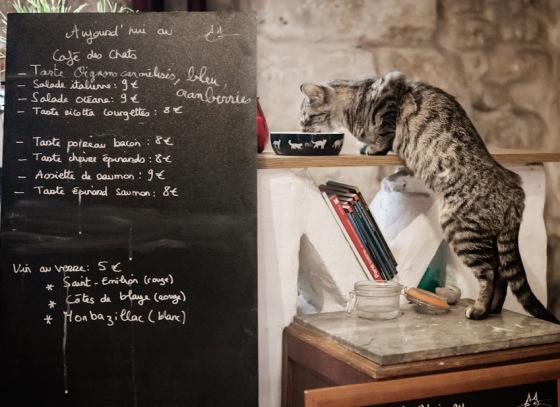 Aujourd'hui au
Café des Chats
- Tarte Oignons caramélisés, bleu, cranberries
- Salade italienne : 9 €
- Salade océane : 9 €
- Tarte ricotta courgettes : 8 €
- Tarte poireau bacon : 8 €
- Tarte chèvre épinards : 8 €
- Assiette de saumon : 9 €
- Tarte épinard saumon : 8 €
Vin au verre : 5 €
* Saint-Emilion (rouge)
* Côtes de blaye (rouge)
* Monbazillac (blanc)